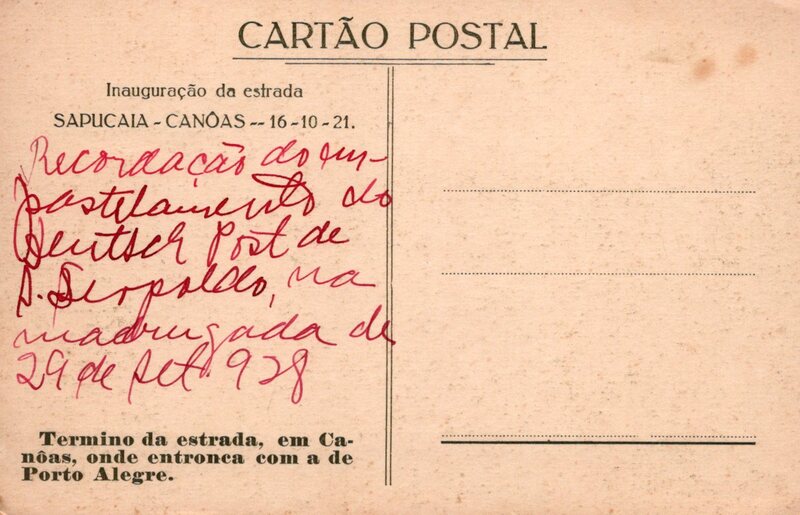 CARTÃO POSTAL
Inauguração da estrada
SAPUCAIA - CANÔAS -- 16-10-21.
Recordação do em-
pastelamento do
Deutsch Post de
S. Leopoldo, na
madrugada de
29 de set. 928
Termino da estrada, em Ca-
nôas, onde entronca com a de
Porto Alegre.